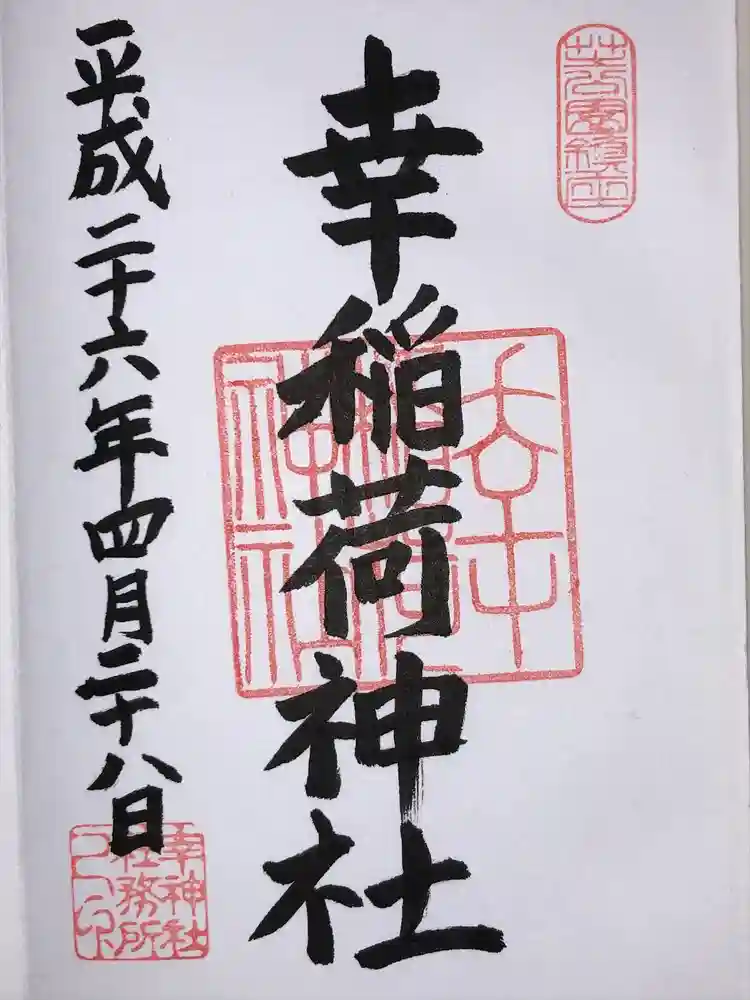 芝公園鎮座
幸稲荷神社
平成二十六年四月二十八日
幸稲荷神社
幸神社
社務所
之印